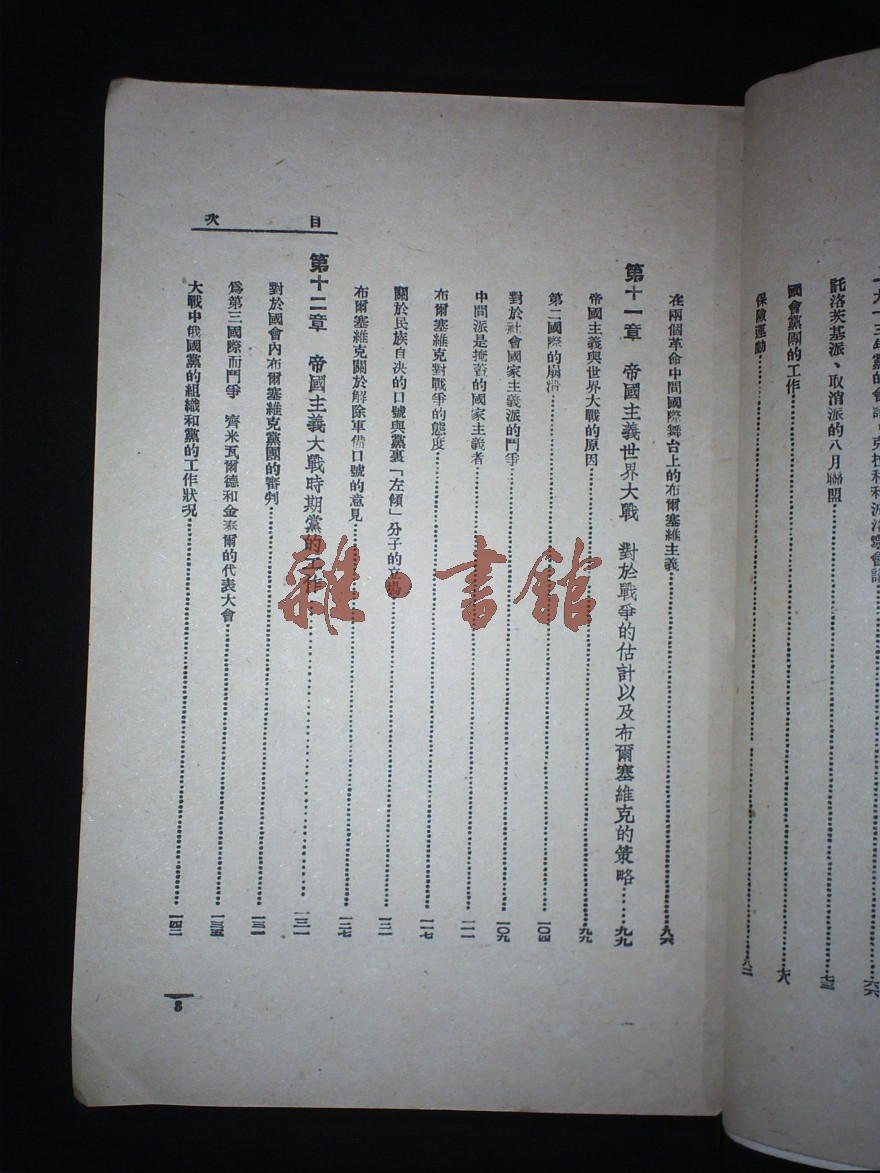 託洛茨基派、取消派的八月聯盟……七三
國會黨團的工作……
保險運動……八二
目次
在兩個革命中間國際舞台上的布爾塞維主義……九六
第十一章 帝國主義世界大戰 對於戰爭的估計以及布爾塞維克的策略……九九
帝國主義與世界大戰的原因……九九
第二國際的崩潰……一〇四
對於社會國家主義派的鬥爭……一〇九
中間派是掩蓋的國家主義者……一一一
布爾塞維克對戰爭的態度……一一七
關於民族自决的口號與黨裏「左傾」分子的立場……一二一
布爾塞維克關於解除軍備口號的意見……一二七
第十二章 帝國主義大戰時期黨的工作……一三一
對於國會內布爾塞維克黨團的審判……一三一
爲第三國際而鬥爭 齊米瓦爾德和金泰爾的代表大會……一三五
大戰中俄國黨的組織和黨的工作狀况……一四二
8
雜·書館